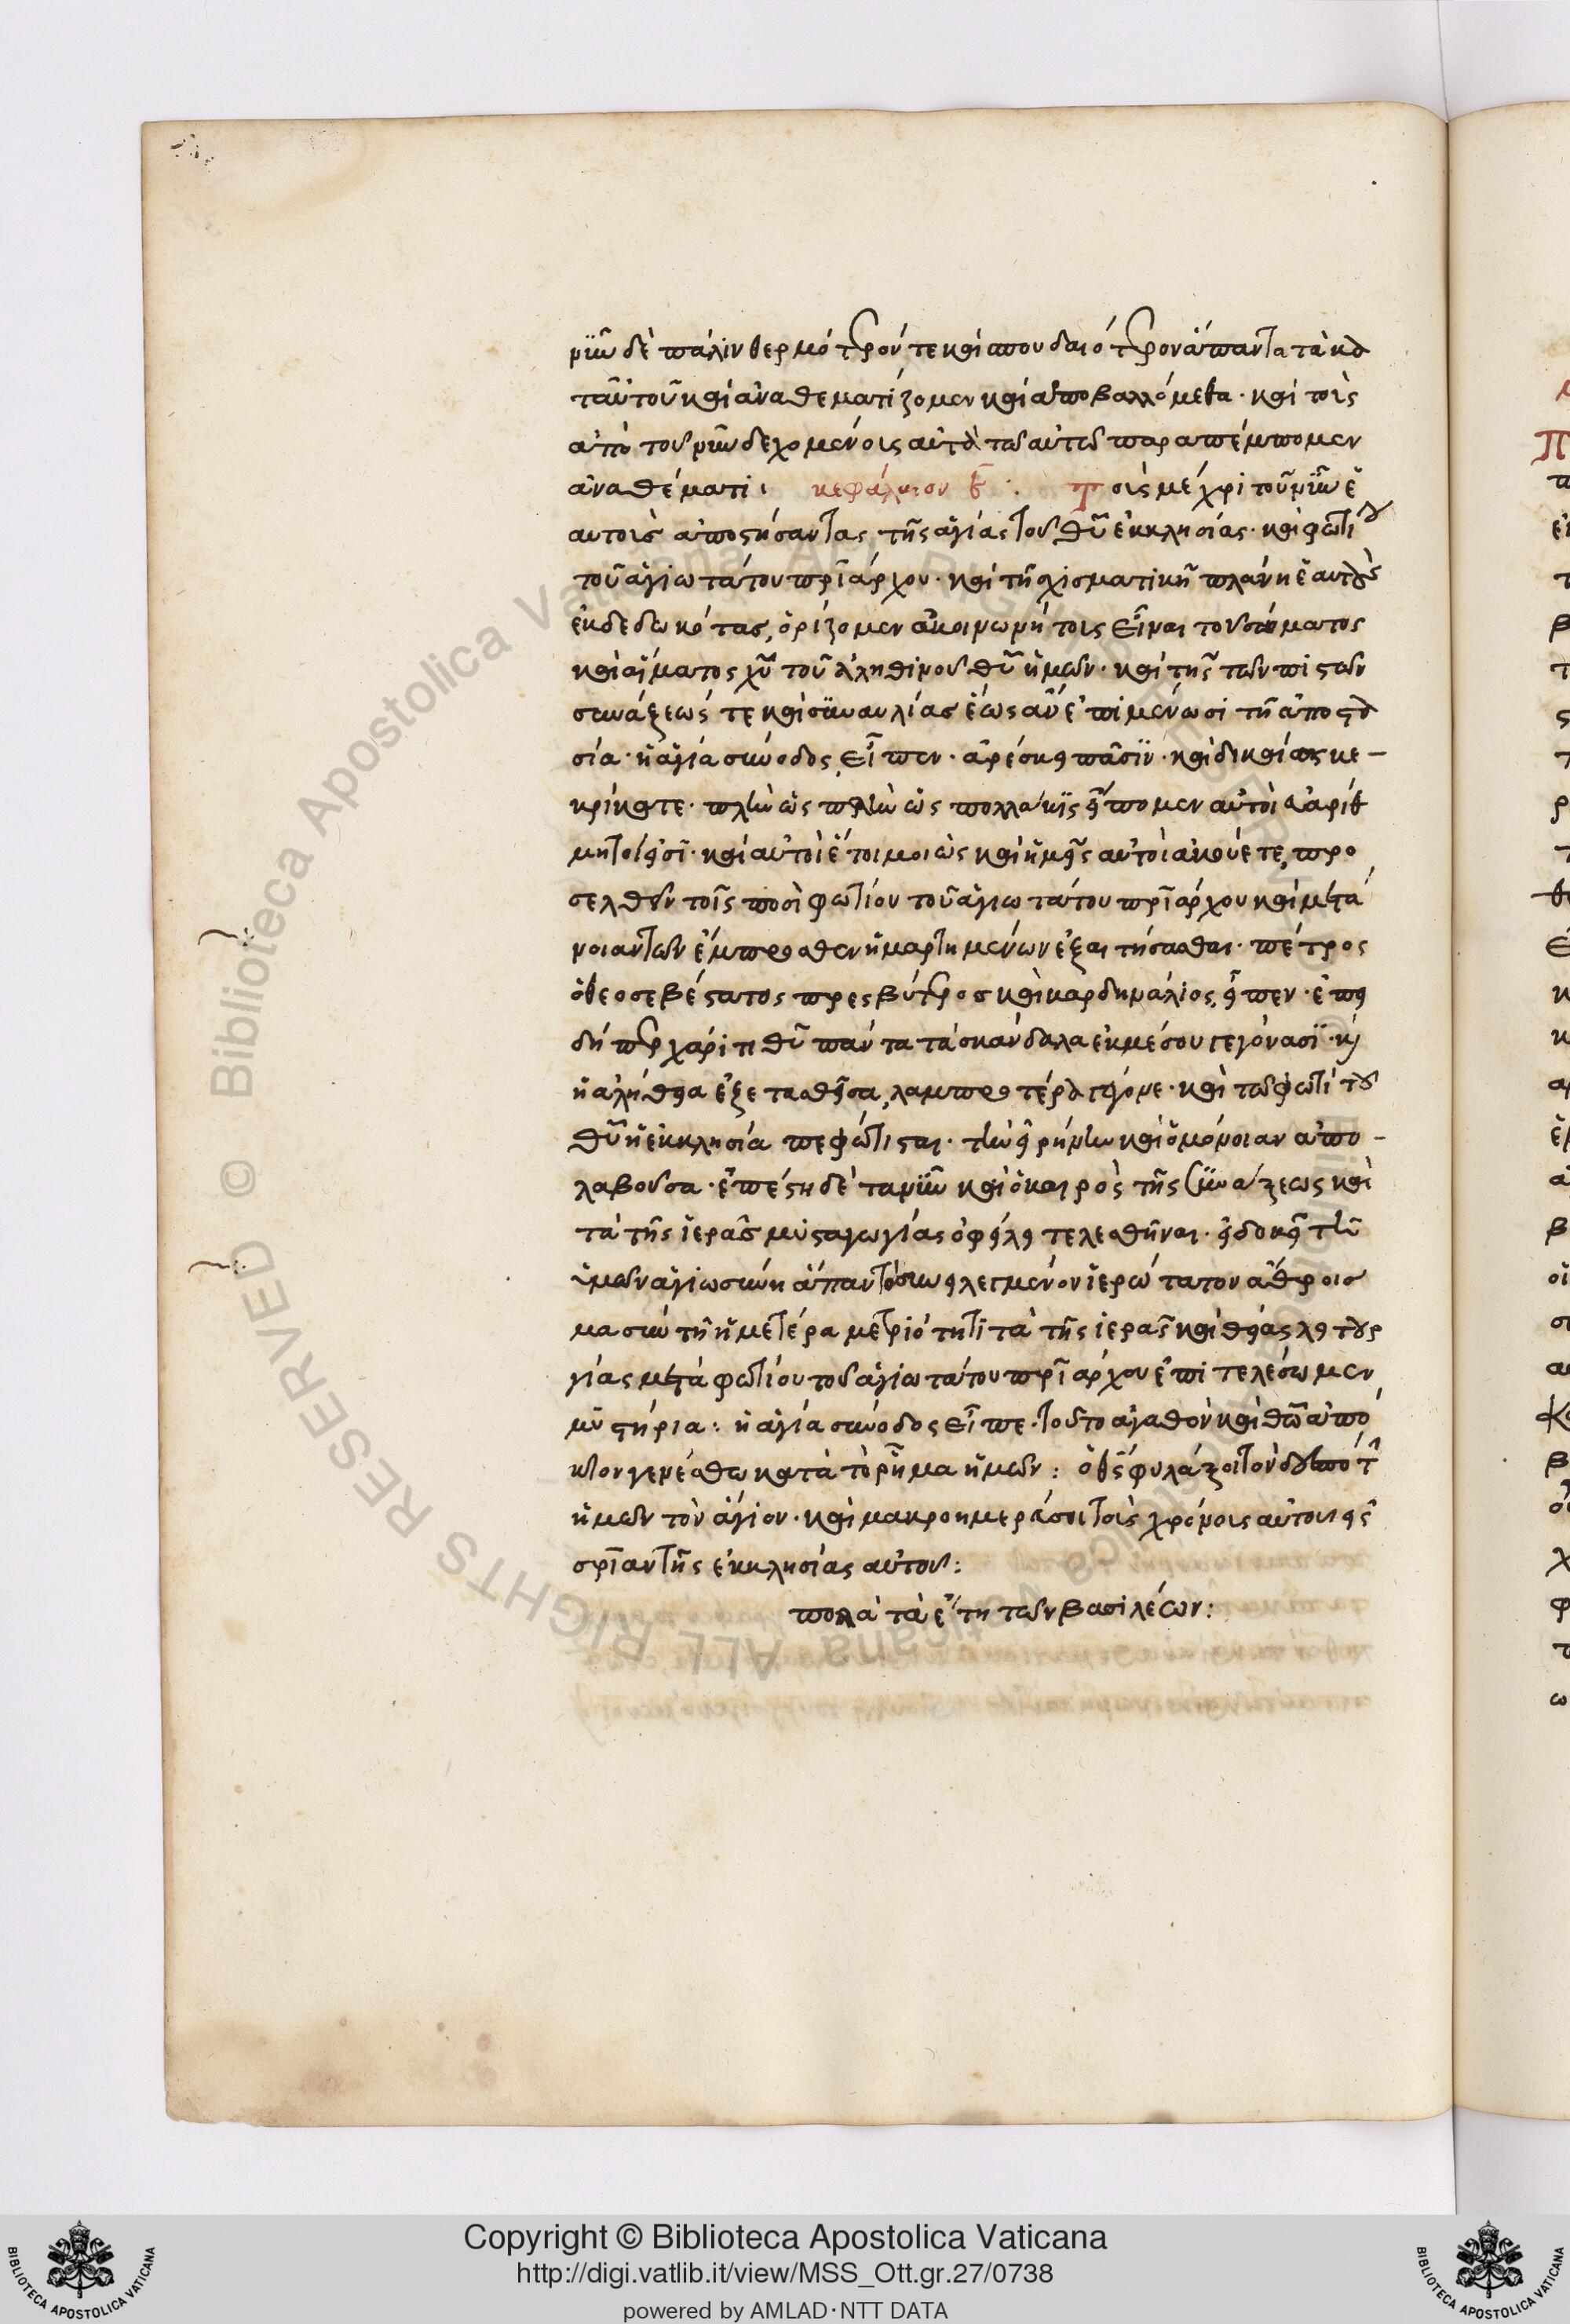 νῦν δὲ πάλιν θερμότερόν τε καὶ σπουδαιότερον ἅπαντα τὰ κα
τ' αὐτοῦ καὶ ἀναθεματίζομεν καὶ ἀποβαλλόμεθα · καὶ τοὶς
ἀπὸ τοῦ νῦν δεχομένοις αὐτὰ τῶ αὐτῶ παραπέμπομεν
ἀναθέματι · κεφάλαιον · Τοὶς μέχρι τοῦ νῦν ἑ
αυτοὶς ἀποστήσαντας τῆς ἁγίας τοῦ θῦ ἐκκλησίας · καὶ φωτίου
τοῦ ἁγιωτάτου πρϊάρχου · καὶ τῆ σχισματικῆ πλάνη ἑαυτοὺς
ἐκδεδωκότας, ὁρίζομεν ἀκοινωνήτοις εἶναι τοῦ σώματος
καὶ αἵματος χῦ τοῦ ἀληθινοῦ θῦ ἡμῶν · καὶ τῆς τῶν πιστῶν
συνάξεώς τε καὶ συναυλίας ἕως ἂν ἐπιμένωσι τῆ ἀποστα
σία · ἡ ἁγία σύνοδος, εἶπεν · ἀρέσκει πᾶσϊν · καὶ δικαίως κε-
κρίκατε · πλὴν ὡς πλὴν ὡς πολλάκϊς εἴπομεν αὐτοὶ εὐαρίθ
μητοί εἰσϊ · καὶ αὐτοὶ ἕτοιμοι ὡς καὶ ἡμεῖς αὐτοὶ ἀκούετε, προ
σελθεῖν τοῖς ποσὶ φωτίου τοῦ ἁγιωτάτου πρϊάρχου καὶ μετά
νοιαν τῶν ἔμπροσθεν ἡμαρτημένων ἐξαιτήσασθαι · πέτρος
ὁ θεοσεβέστατος πρεσβύτερος καὶ καρδηνάλιος, εἶπεν · ἐπει
δήπερ χάριτι θῦ πάντα τὰ σκάνδαλα ἐκ μέσου γεγόνασϊ · κ
ἡ ἀλήθεια ἐξετασθεῖσα, λαμπροτέρα γέγονε · καὶ τῶ φωτὶ τοῦ
θῦ ἡ ἐκκλησία πεφώτισται · τὴν εἰρήνην καὶ ὁμόνοιαν ἀπο-
λαβοῦσα · ἐπέστη δὲ τανῦν καὶ ὁ καιρὸς τῆς συνάξεως καὶ
τὰ τῆς ἱερᾶς μυσταγωγίας ὀφείλει τελεσθῆναι · εἰ δοκεῖ τῆ
ὑμῶν ἁγιωσύνη ἅπαν τὸ συνειλεγμένον ἱερώτατον ἄθροισ
μα σὺν τῆ ἡμετέρα μετριότητι τὰ τῆς ἱερᾶς καὶ θείας λειτουρ
γίας μετὰ φωτίου τοῦ ἁγιωτάτου πρϊάρχου ἐπιτελέσωμεν
μυστήρια : ἡ ἁγία σύνοδος εἶπε · τοῦτο ἀγαθὸν καὶ θῶ ἀπό
κτον γενέσθω κατὰ τὸ ρῆμα ἡμῶν : ὁ θς φυλάξοι τὸν δεσπότ
ἡμῶν τὸν ἅγιον · καὶ μακροημεράσοι τοὶς χρόνοις αὐτοῦ εἰς
σρϊαν τῆς ἐκκλησίας αὐτοῦ :
πολλὰ τὰ ἔτη τῶν βασιλέων :
Copyright © Biblioteca Apostolica Vaticana
http://digi.vatlib.it/view/MSS_Ott.gr.27/0738
powered by AMLAD·NTT DATA